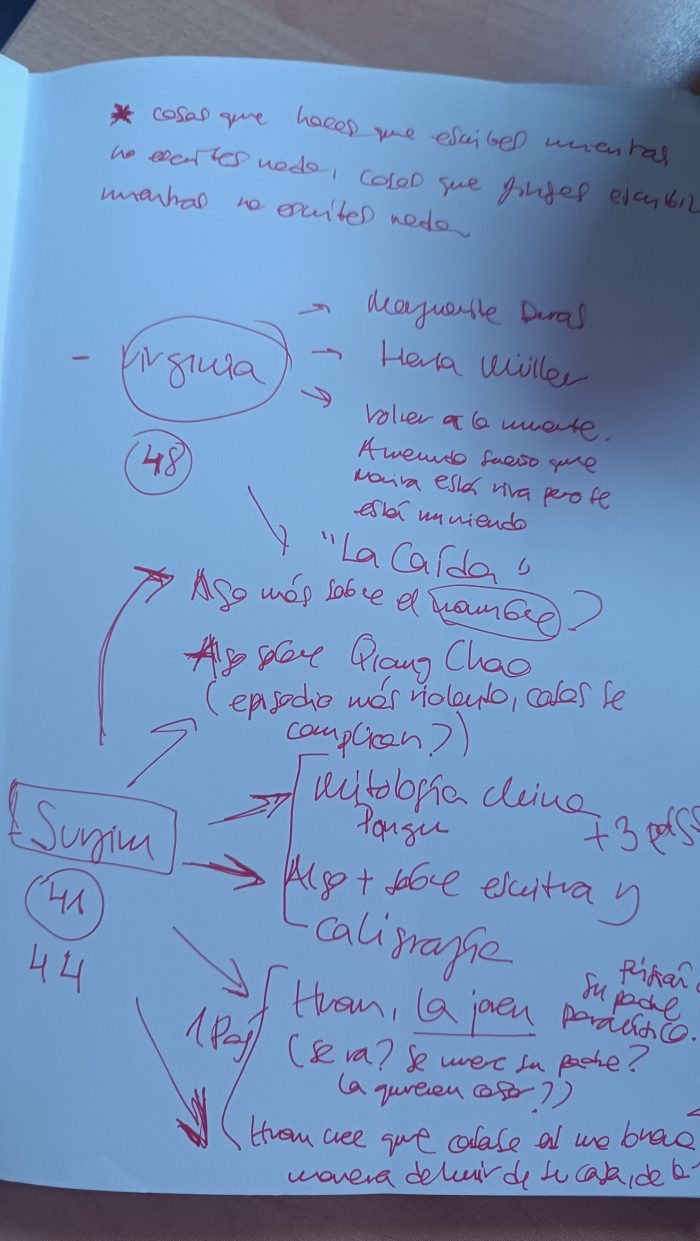 * cosas que haces que escribes mientras
no escribes nada, cosas que finges escribir
mientras no escribes nada
→ Marguerite Duras
- Virginia → Herta Müller
→ Volver a la muerte.
48 A menudo sueño que
está viva pero se
está muriendo
"La Caída"
Algo más sobre el hambre?
Algo sobre Qiang Chao
(episodio más violento, cosas se
complican?)
Mitología china
Pangu + 3
Sunjin
Algo + sobre escritura y
41 caligrafía
44
Huan, la joven
su padre
paralítico.
1 pag
(se va? se muere su padre?
la quieren casar?)
Huan cree que casarse es una buena
manera de huir de su casa, de